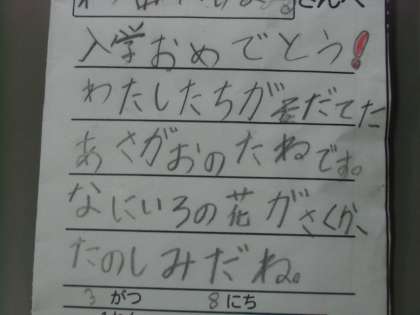 さんへ
入学おめでとう!
わたしたちがそだてた
あさがおのたねです。
なにいろの花がさくか、
たのしみだね。
3がつ 8にち